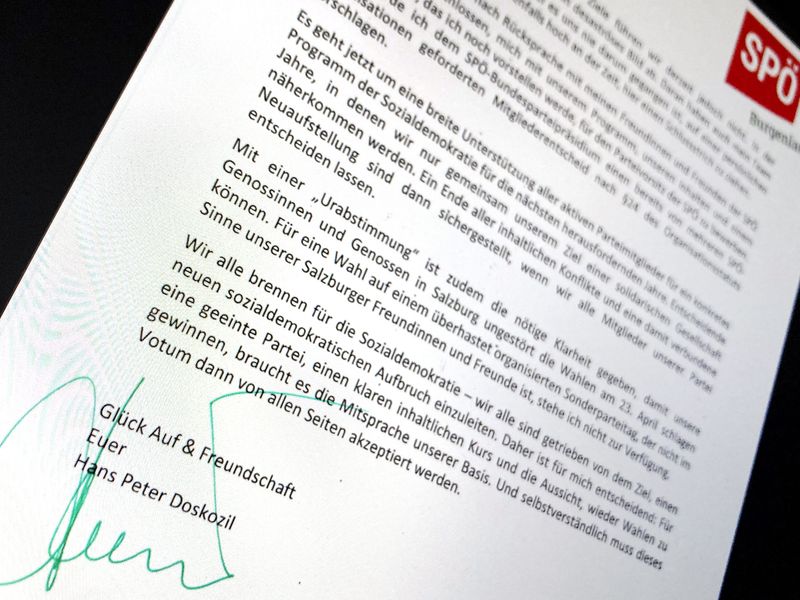 SPÖ
Burgenla
Ziele führen wir derzeit jedoch nicht, in der
nach Rücksprache mit meinen Freundinnen und Freunden der SPÖ
schlossen, mich mit unserem Programm, unseren Inhalten und einem
das ich noch vorstellen werde, für den Parteivorsitz der SPÖ zu bewerben.
de ich dem SPÖ-Bundesparteipräsidium einen bereits von mehreren SPÖ-
isationen geforderten Mitgliederentscheid nach §24 des Organisationsstatuts
rschlagen.
Es geht jetzt um eine breite Unterstützung aller aktiven Parteimitglieder für ein konkretes
Programm der Sozialdemokratie für die nächsten herausfordernden Jahre. Entscheidende
Jahre, in denen wir nur gemeinsam unserem Ziel einer solidarischen Gesellschaft
näherkommen werden. Ein Ende aller inhaltlichen Konflikte und eine damit verbundene
Neuaufstellung sind dann sichergestellt, wenn wir alle Mitglieder unserer Partei
entscheiden lassen.
Mit einer „Urabstimmung" ist zudem die nötige Klarheit gegeben, damit unsere
Genossinnen und Genossen in Salzburg ungestört die Wahlen am 23. April schlagen
können. Für eine Wahl auf einem überhastet organisierten Sonderparteitag, der nicht im
Sinne unserer Salzburger Freundinnen und Freunde ist, stehe ich nicht zur Verfügung.
Wir alle brennen für die Sozialdemokratie – wir alle sind getrieben von dem Ziel, einen
neuen sozialdemokratischen Aufbruch einzuleiten. Daher ist für mich entscheidend: Für
eine geeinte Partei, einen klaren inhaltlichen Kurs und die Aussicht, wieder Wahlen zu
gewinnen, braucht es die Mitsprache unserer Basis. Und selbstverständlich muss dieses
Votum dann von allen Seiten akzeptiert werden.
Glück Auf & Freundschaft
Euer
Hans Peter Doskozil